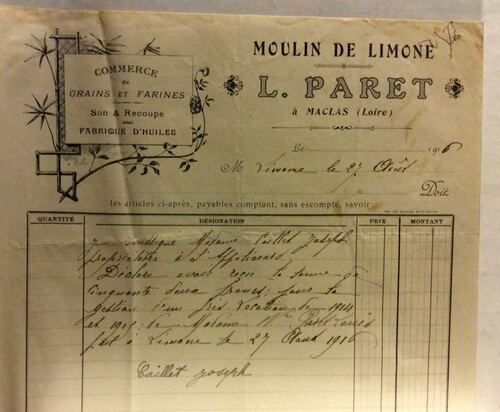 COMMERCE
de
GRAINS ET FARINES
Son & Recoupe
FABRIQUE D'HUILES
MOULIN DE LIMONE
L. PARET
à MACLAS (Loire)
Le 1916
M Limone le 27 Août
Doit
les articles ci-après, payables comptant, sans escompte, savoir:
QUANTITÉ DÉSIGNATION PRIX MONTANT
Madame Caillet Joseph
propriétaire à St Appolinard
Déclare avoir reçu la somme de
cinquante deux francs; pour la
location de 1914
et 1915; de Madame
fait à Limone le 27 Aout 1916
Caillet Joseph